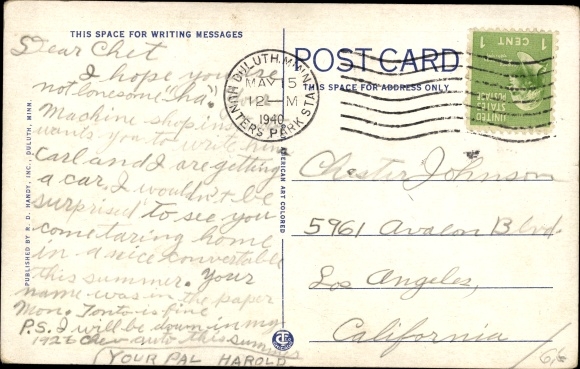 THIS SPACE FOR WRITING MESSAGES
Dear Chet
I hope you're
not lonesome "ha".
Machine shop ins
wants you to write him
Carl and I are getting
a car. I wouldn't be
surprised to see you
come taring home
in a nice convertable
this summer. Your
name was in the paper
Mon. Tonto is fine
P.S. I will be down in my
1926 Chev auto this summer
(YOUR PAL HAROLD
PUBLISHED BY R. D. HANDY, INC., DULUTH, MINN.
AMERICAN ART COLORED
DULUTH, MINN.
MAY 15
12 - M
1940
HUNTERS PARK STA.
POST CARD
THIS SPACE FOR ADDRESS ONLY
1 CENT 1
UNITED
STATES
POSTAGE
Chester Johnson
5961 Avalon Blvd.
Los Angeles,
California